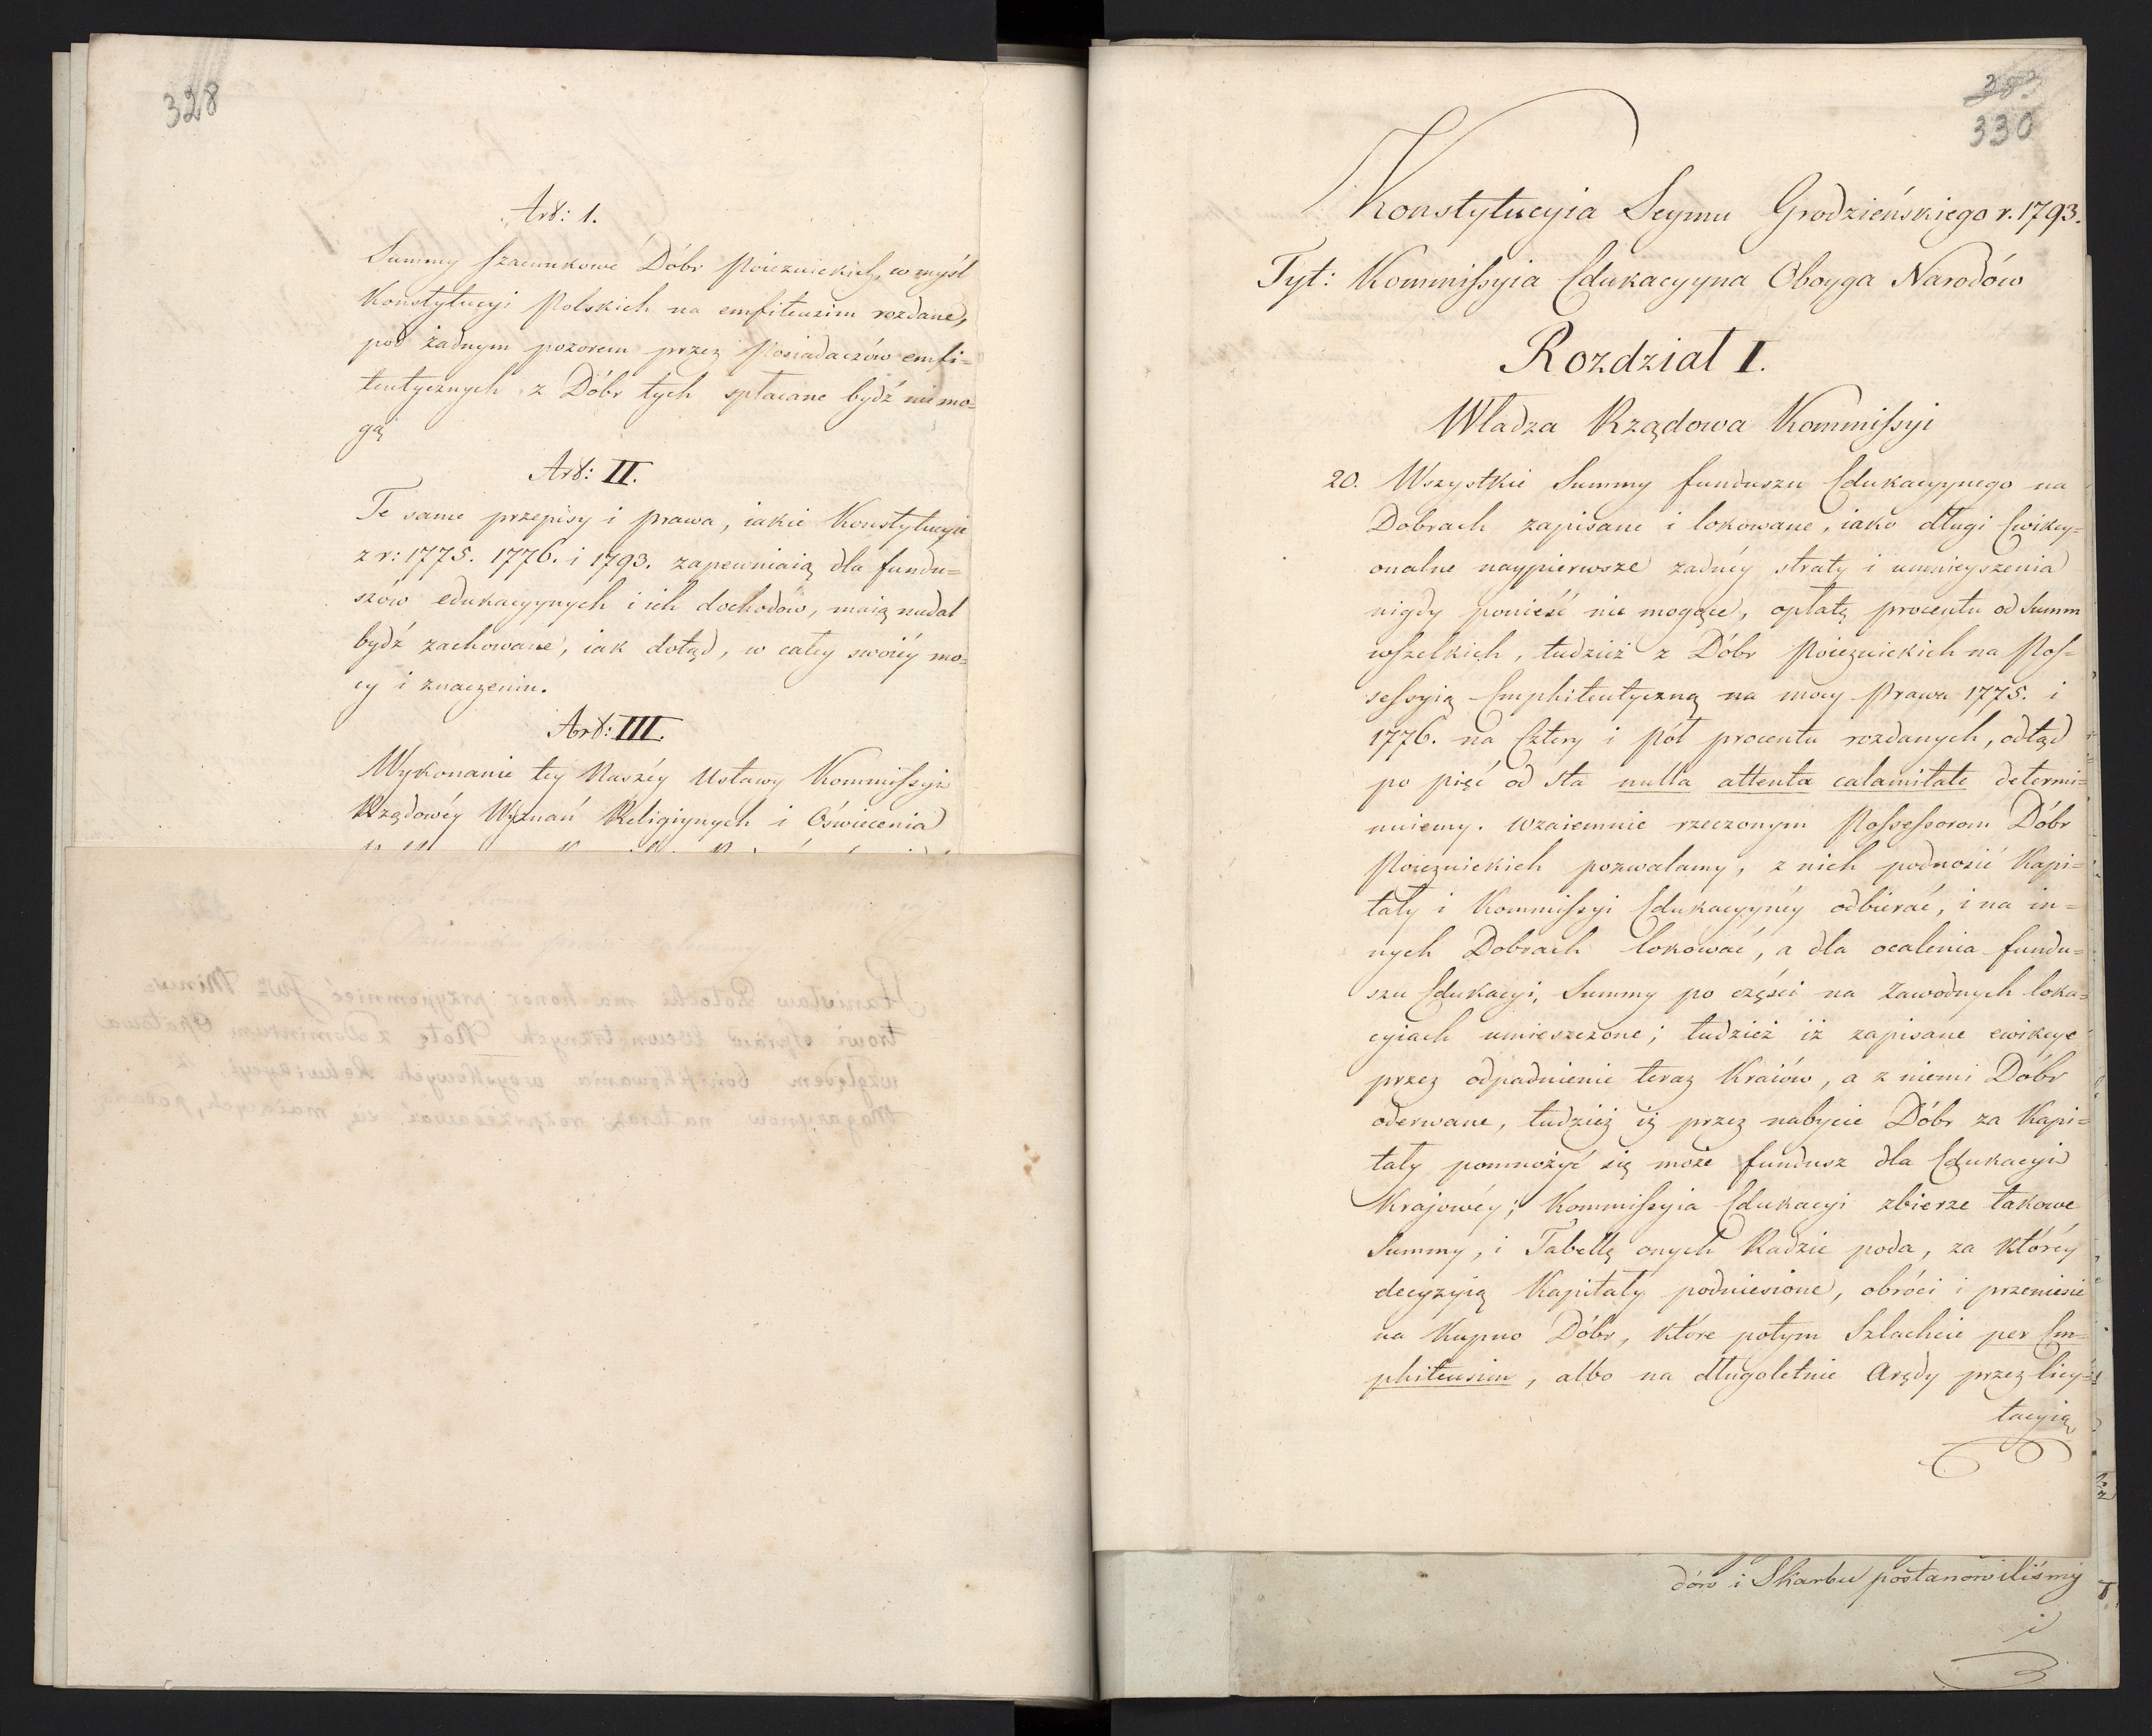 328
Art: 1.
Summy szacunkowe Dóbr Poieznickich, w myśl
Konstytucyi Polskich na emfiteuzim rozdane,
pod żadnym pozorem przez Posiadaczów emfi=
teutycznych z Dóbr tych spłacane bydź nie mo=
gą
Art: II.
Te same przepisy i prawa, iakie Konstytucyie
z r: 1775. 1776. i 1793. zapewniaią dla fundu=
szów edukacyynych i ich dochodów, maią nadal
bydź zachowane, iak dotąd, w całey swoiéy mo=
cy i znaczeniu.
Art: III.
Wykonanie tey Naszéy Ustawy Kommissyi
Rządowéy Wyznań Religiynych i Oświecenia
330
Konstytucyia Seymu Grodzieńskiego r. 1793.
Tyt: Kommissyia Edukacyyna Oboyga Narodów
Rozdział I.
Władza Rządowa Kommissyi
20. Wszystkie Summy funduszu Edukacyynego na
Dobrach zapisane i lokowane, iako długi Ewikcy=
onalne naypierwsze żadnéy straty i umnieyszenia
nigdy ponieść nie mogące, opłatę procentu od Summ
wszelkich, tudzież z Dóbr Poieznickich na Pos=
sessyią Emphiteutyczną na mocy Prawa 1775. i
1776. na Cztery i Pół procentu rozdanych, odtąd
po pięć od sta nulla attenta calamitate determi=
nuiemy. Wzaiemnie rzeczonym Possessorom Dóbr
Poieznickich pozwalamy, z nich podnosić Kapi=
tały i Kommissyi Edukacyynéy odbierać, i na in=
nych Dobrach lokować, a dla ocalenia fundu=
szu Edukacyi, Summy po części na zawodnych loka=
cyiach umieszczone; tudzież iż zapisane ewikcye
przez odpadnienie teraz Kraiów, a z niemi Dóbr
oderwane, tudzież iż przez nabycie Dóbr za Kapi=
tały pomnożyć się może fundusz dla Edukacyi
Krajowéy; Kommissyia Edukacyi zbierze takowe
Summy, i Tabellę onych Radzie poda, za któréy
decyzyią Kapitały podniesione, obróci i przeniesie
na Kupno Dóbr, które potym Szlachcie per Em=
phiteusim, albo na długoletnie Arędy przez licy=
tacyią
dów i Skarbu postanowiliśmy
i